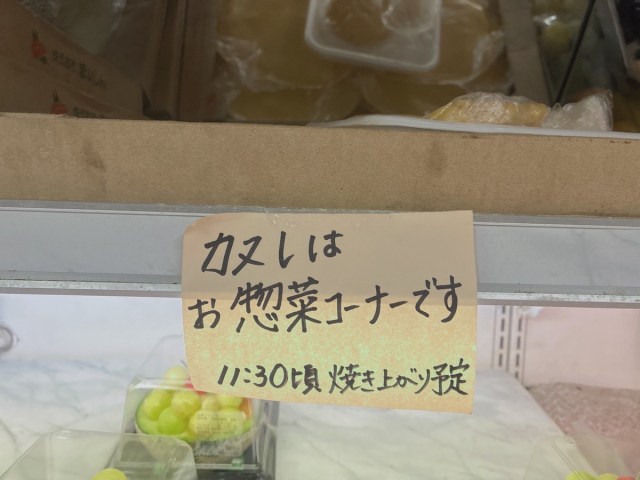 カヌレは
お惣菜コーナーです
11:30頃焼き上がり予定